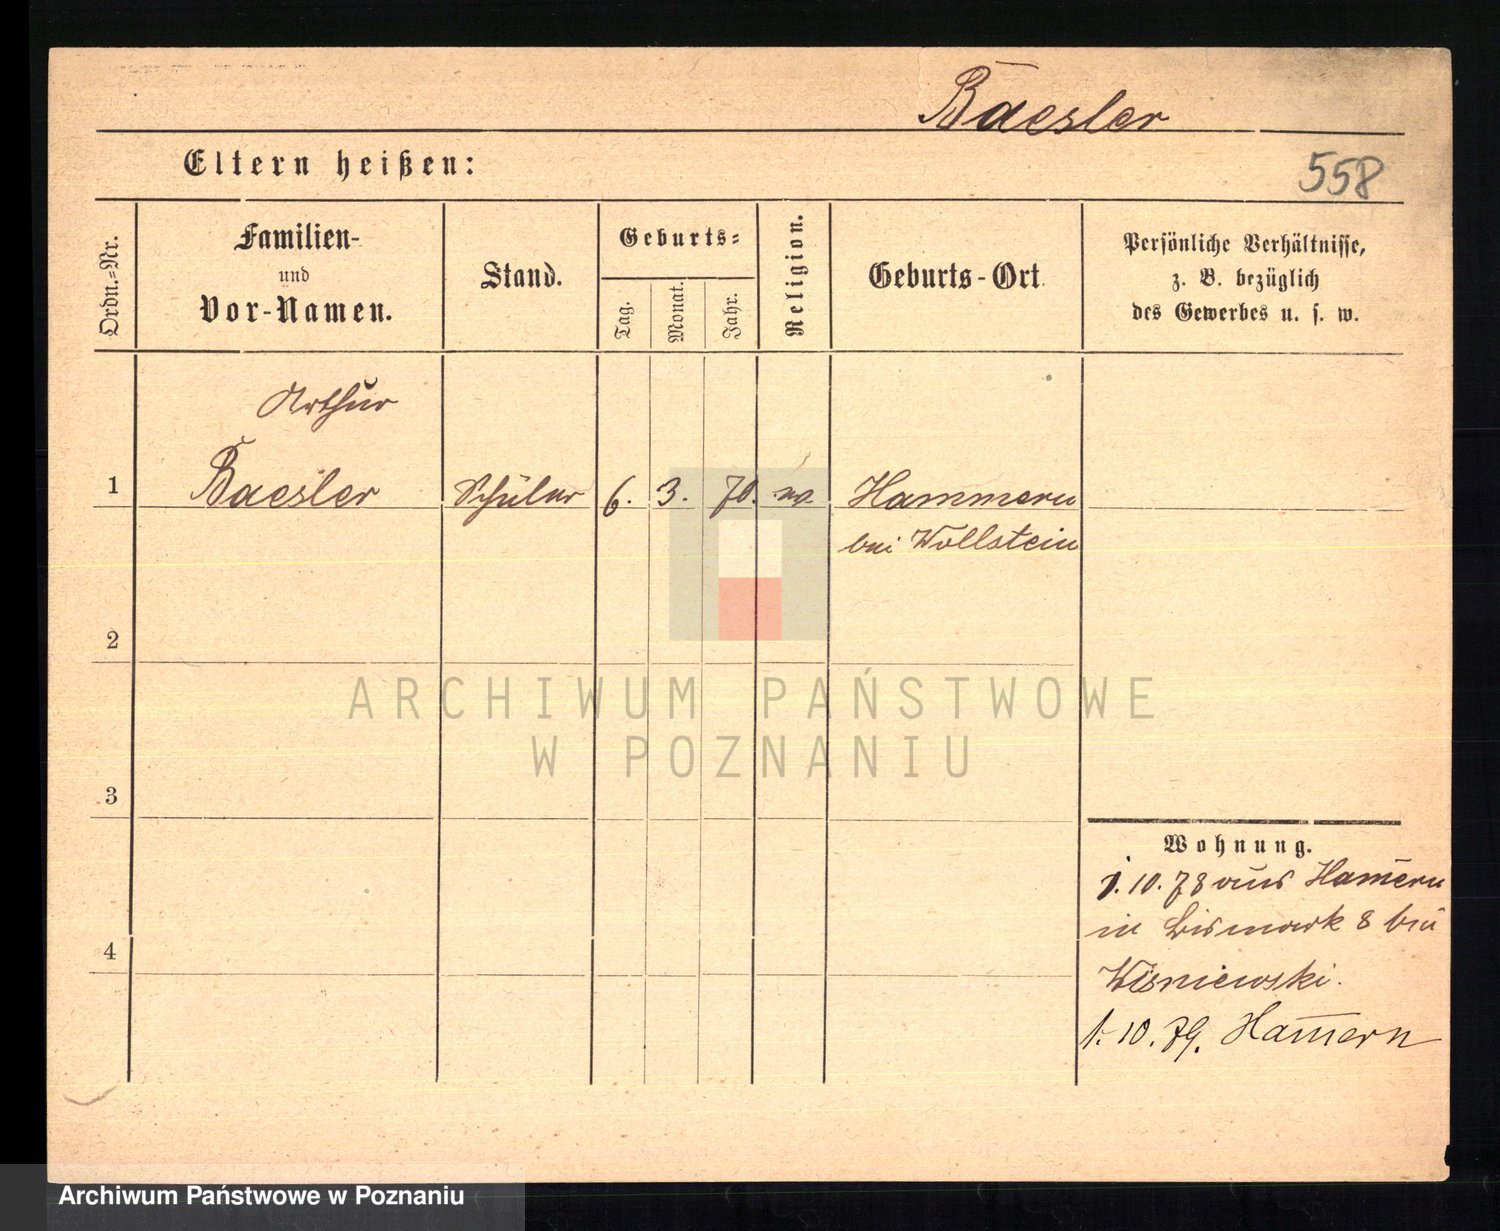 Baesler
Eltern heißen:
558
Ordn.=Nr.
Familien-
und
Vor-Namen.
Stand.
Geburts=
Tag.
Monat.
Jahr.
Religion.
Geburts-Ort
Persönliche Verhältnisse,
z. B. bezüglich
des Gewerbes u. s. w.
Arthur
1 Baesler Schüler 6. 3. 70. ev Hammern
bei Wollstein
2
3
4
Wohnung.
1.10.78 aus Ham̅ern
in Bismark 8 bei
Wisniewski.
1.10.79. Ham̅ern
ARCHIWUM PAŃSTWOWE
W POZNANIU
Archiwum Państwowe w Poznaniu